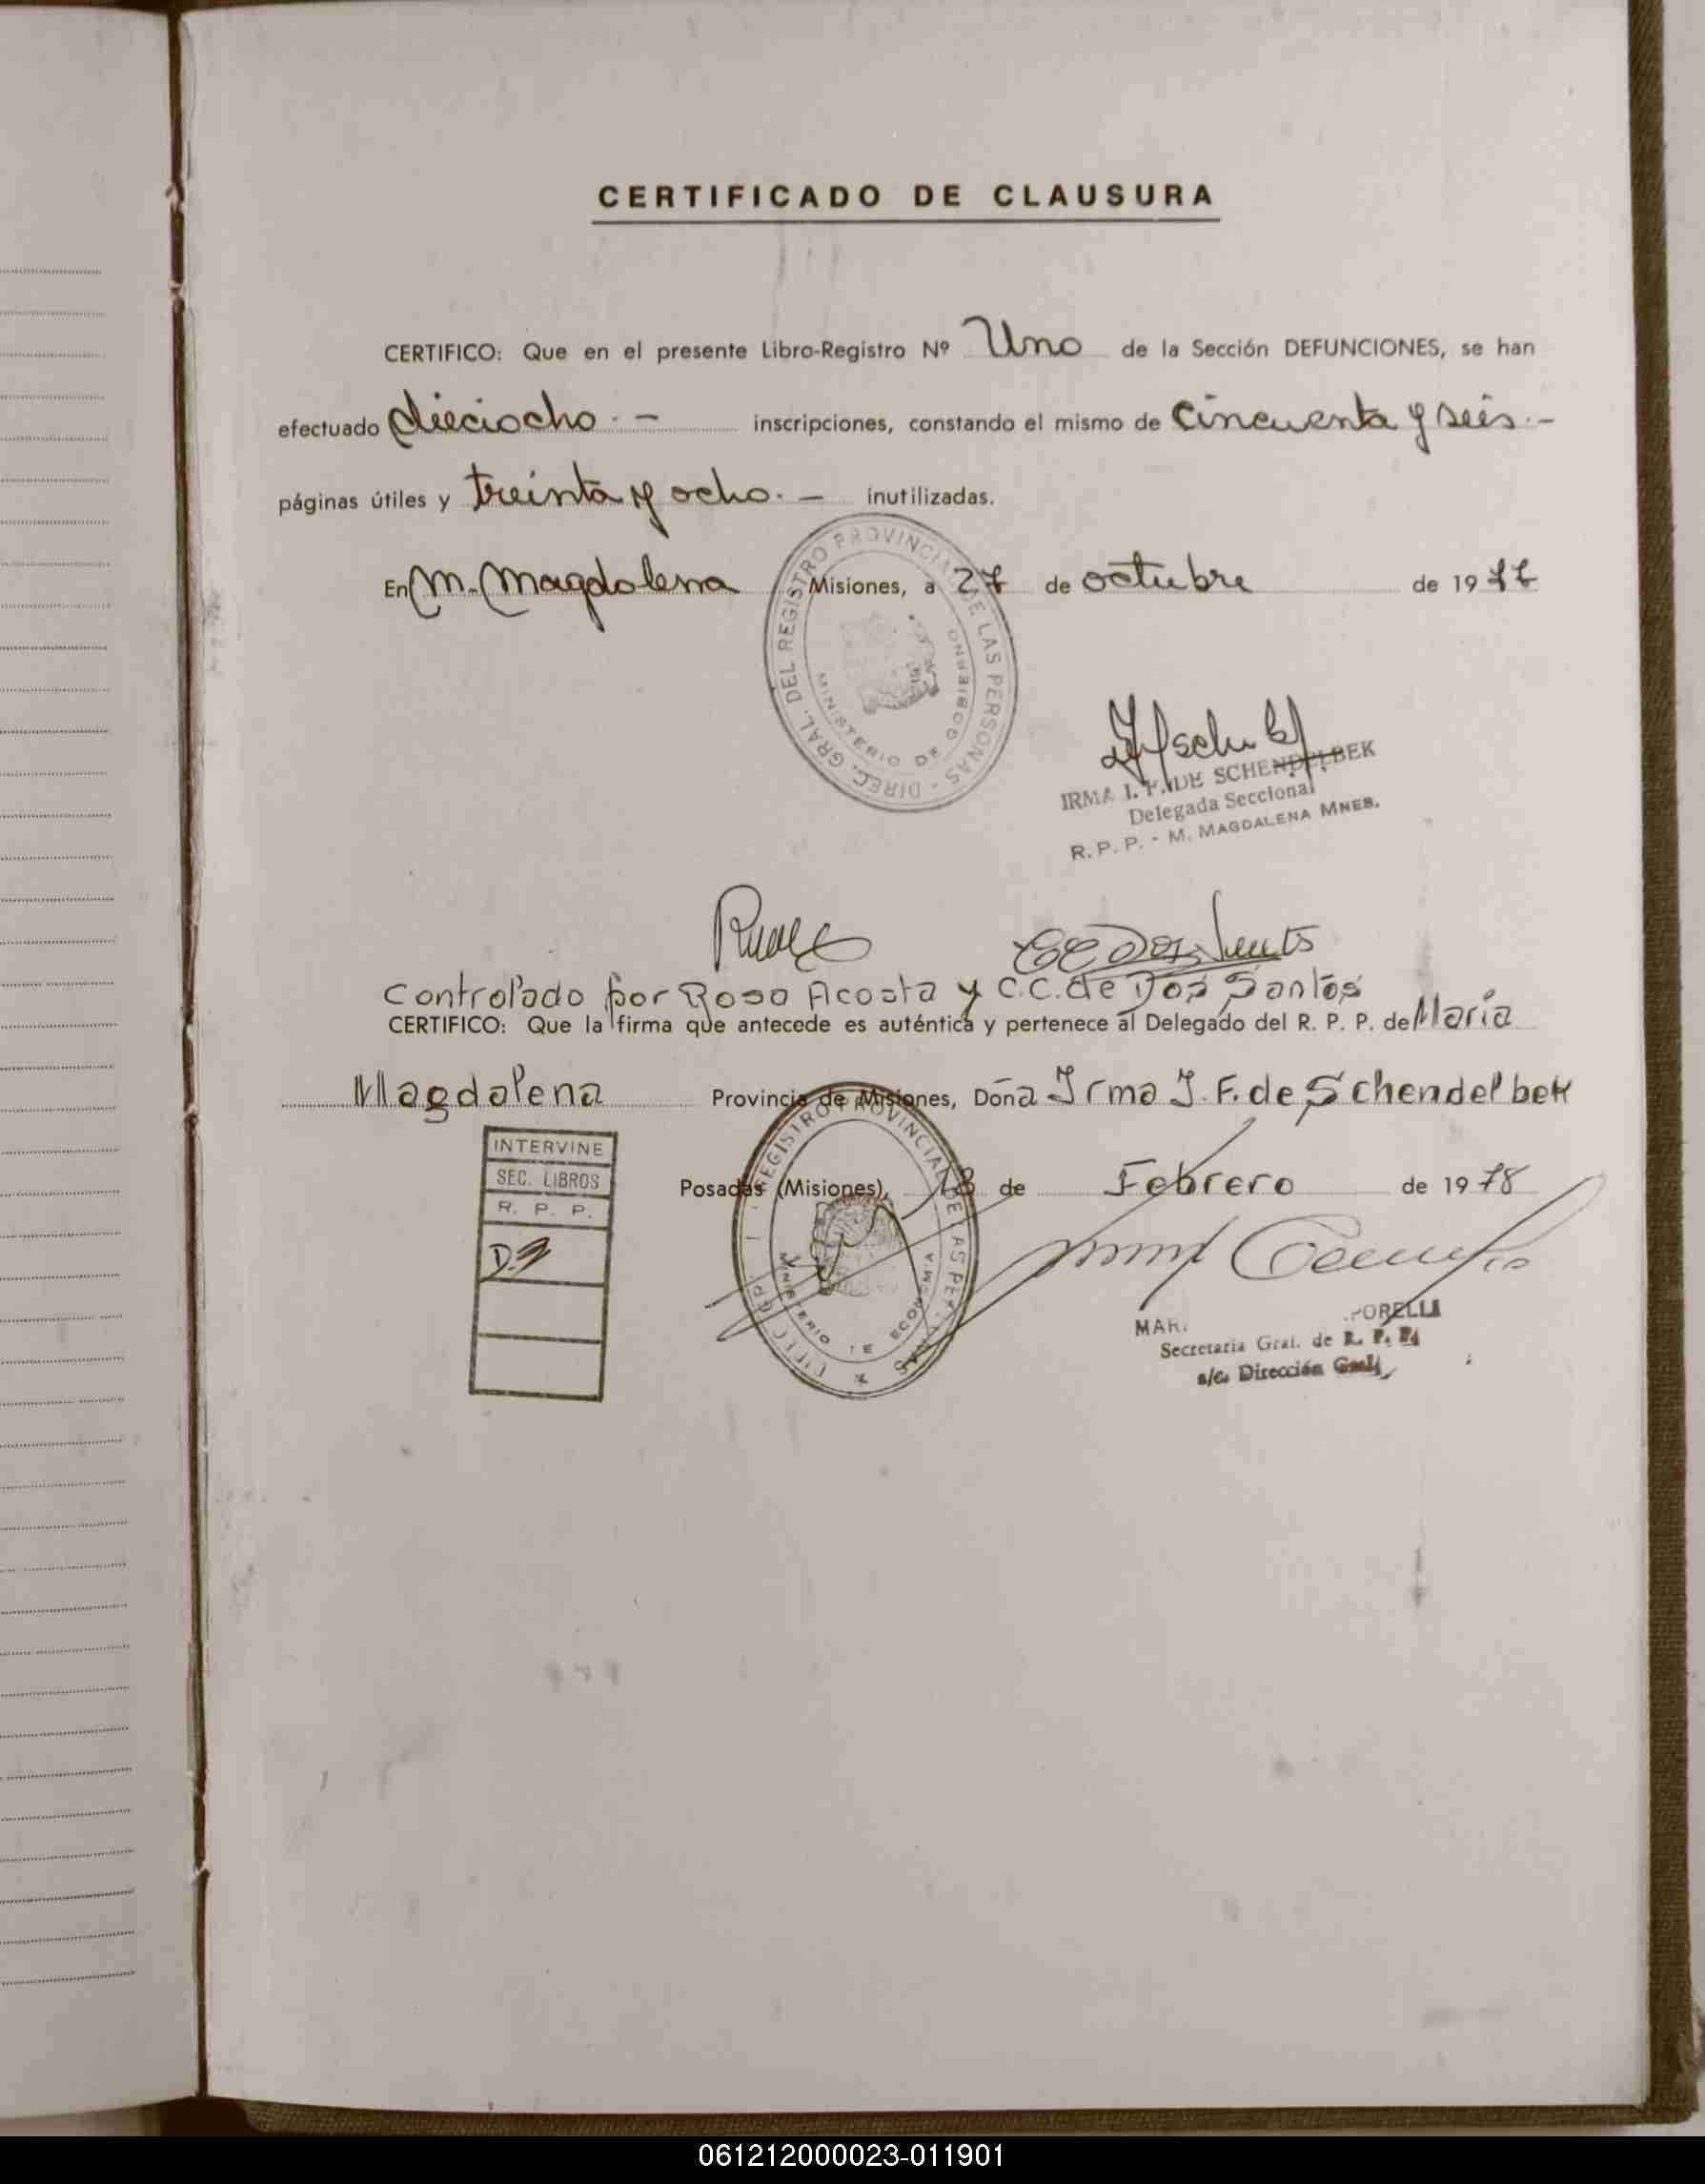 CERTIFICADO DE CLAUSURA
CERTIFICO: Que en el presente Libro-Registro Nº Uno de la Sección DEFUNCIONES, se han
efectuado dieciocho.- inscripciones, constando el mismo de cincuenta y seis.-
páginas útiles y treinta y ocho.- inutilizadas.
En M. Magdalena Misiones, a 27 de octubre de 1977
DIREC. GRAL. DEL REGISTRO PROVINCIAL DE LAS PERSONAS
MINISTERIO DE GOBIERNO
IRMA I. F. DE SCHENDELBEK
Delegada Seccional
R. P. P. - M. MAGDALENA MNES.
Controlado por Rosa Acosta y C.C. de Dos Santos
CERTIFICO: Que la firma que antecede es auténtica y pertenece al Delegado del R. P. P. de María
Magdalena Provincia de Misiones, Doña Irma I. F. de Schendelbek
INTERVINE
SEC. LIBROS
R. P. P.
Posadas (Misiones), 13 de Febrero de 1978
REGISTRO PROVINCIAL DE LAS PERSONAS
MINISTERIO DE ECONOMIA
Secretaria Gral. de R. P. P.
a/c. Dirección Gral.
061212000023-011901